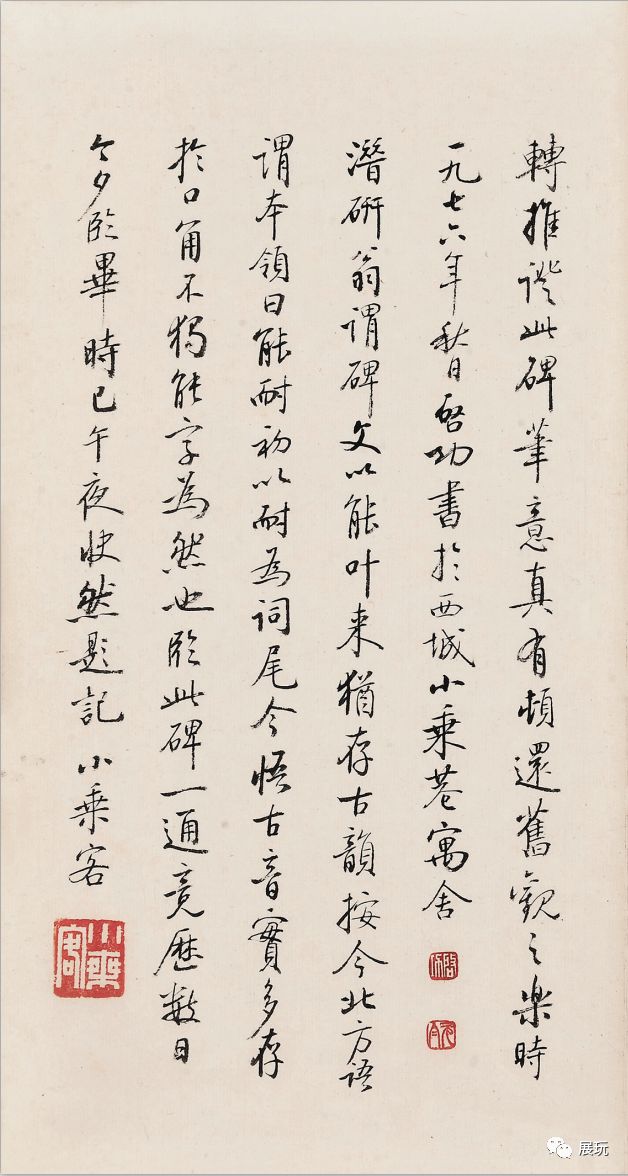 轉推證此碑筆意真有頓還舊觀之樂時
一九七六年秋日啓功書於西城小乘巷寓舍
潛研翁謂碑文以能叶来猶存古韻按今北方語
謂本領曰能耐初以耐為詞尾今悟古音實多存
於口角不獨能字為然也臨此碑一通竟歷數日
今夕臨畢時已午夜快然題記小乘客
啓功
元白
小乘客
展玩